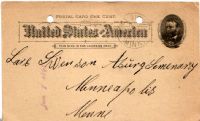 POSTAL CARD ONE CENT.
United States of America
THIS SIDE IS FOR ADDRESS ONLY.
Lars Swenson Augsburg Seminary
Minneapolis
Minn